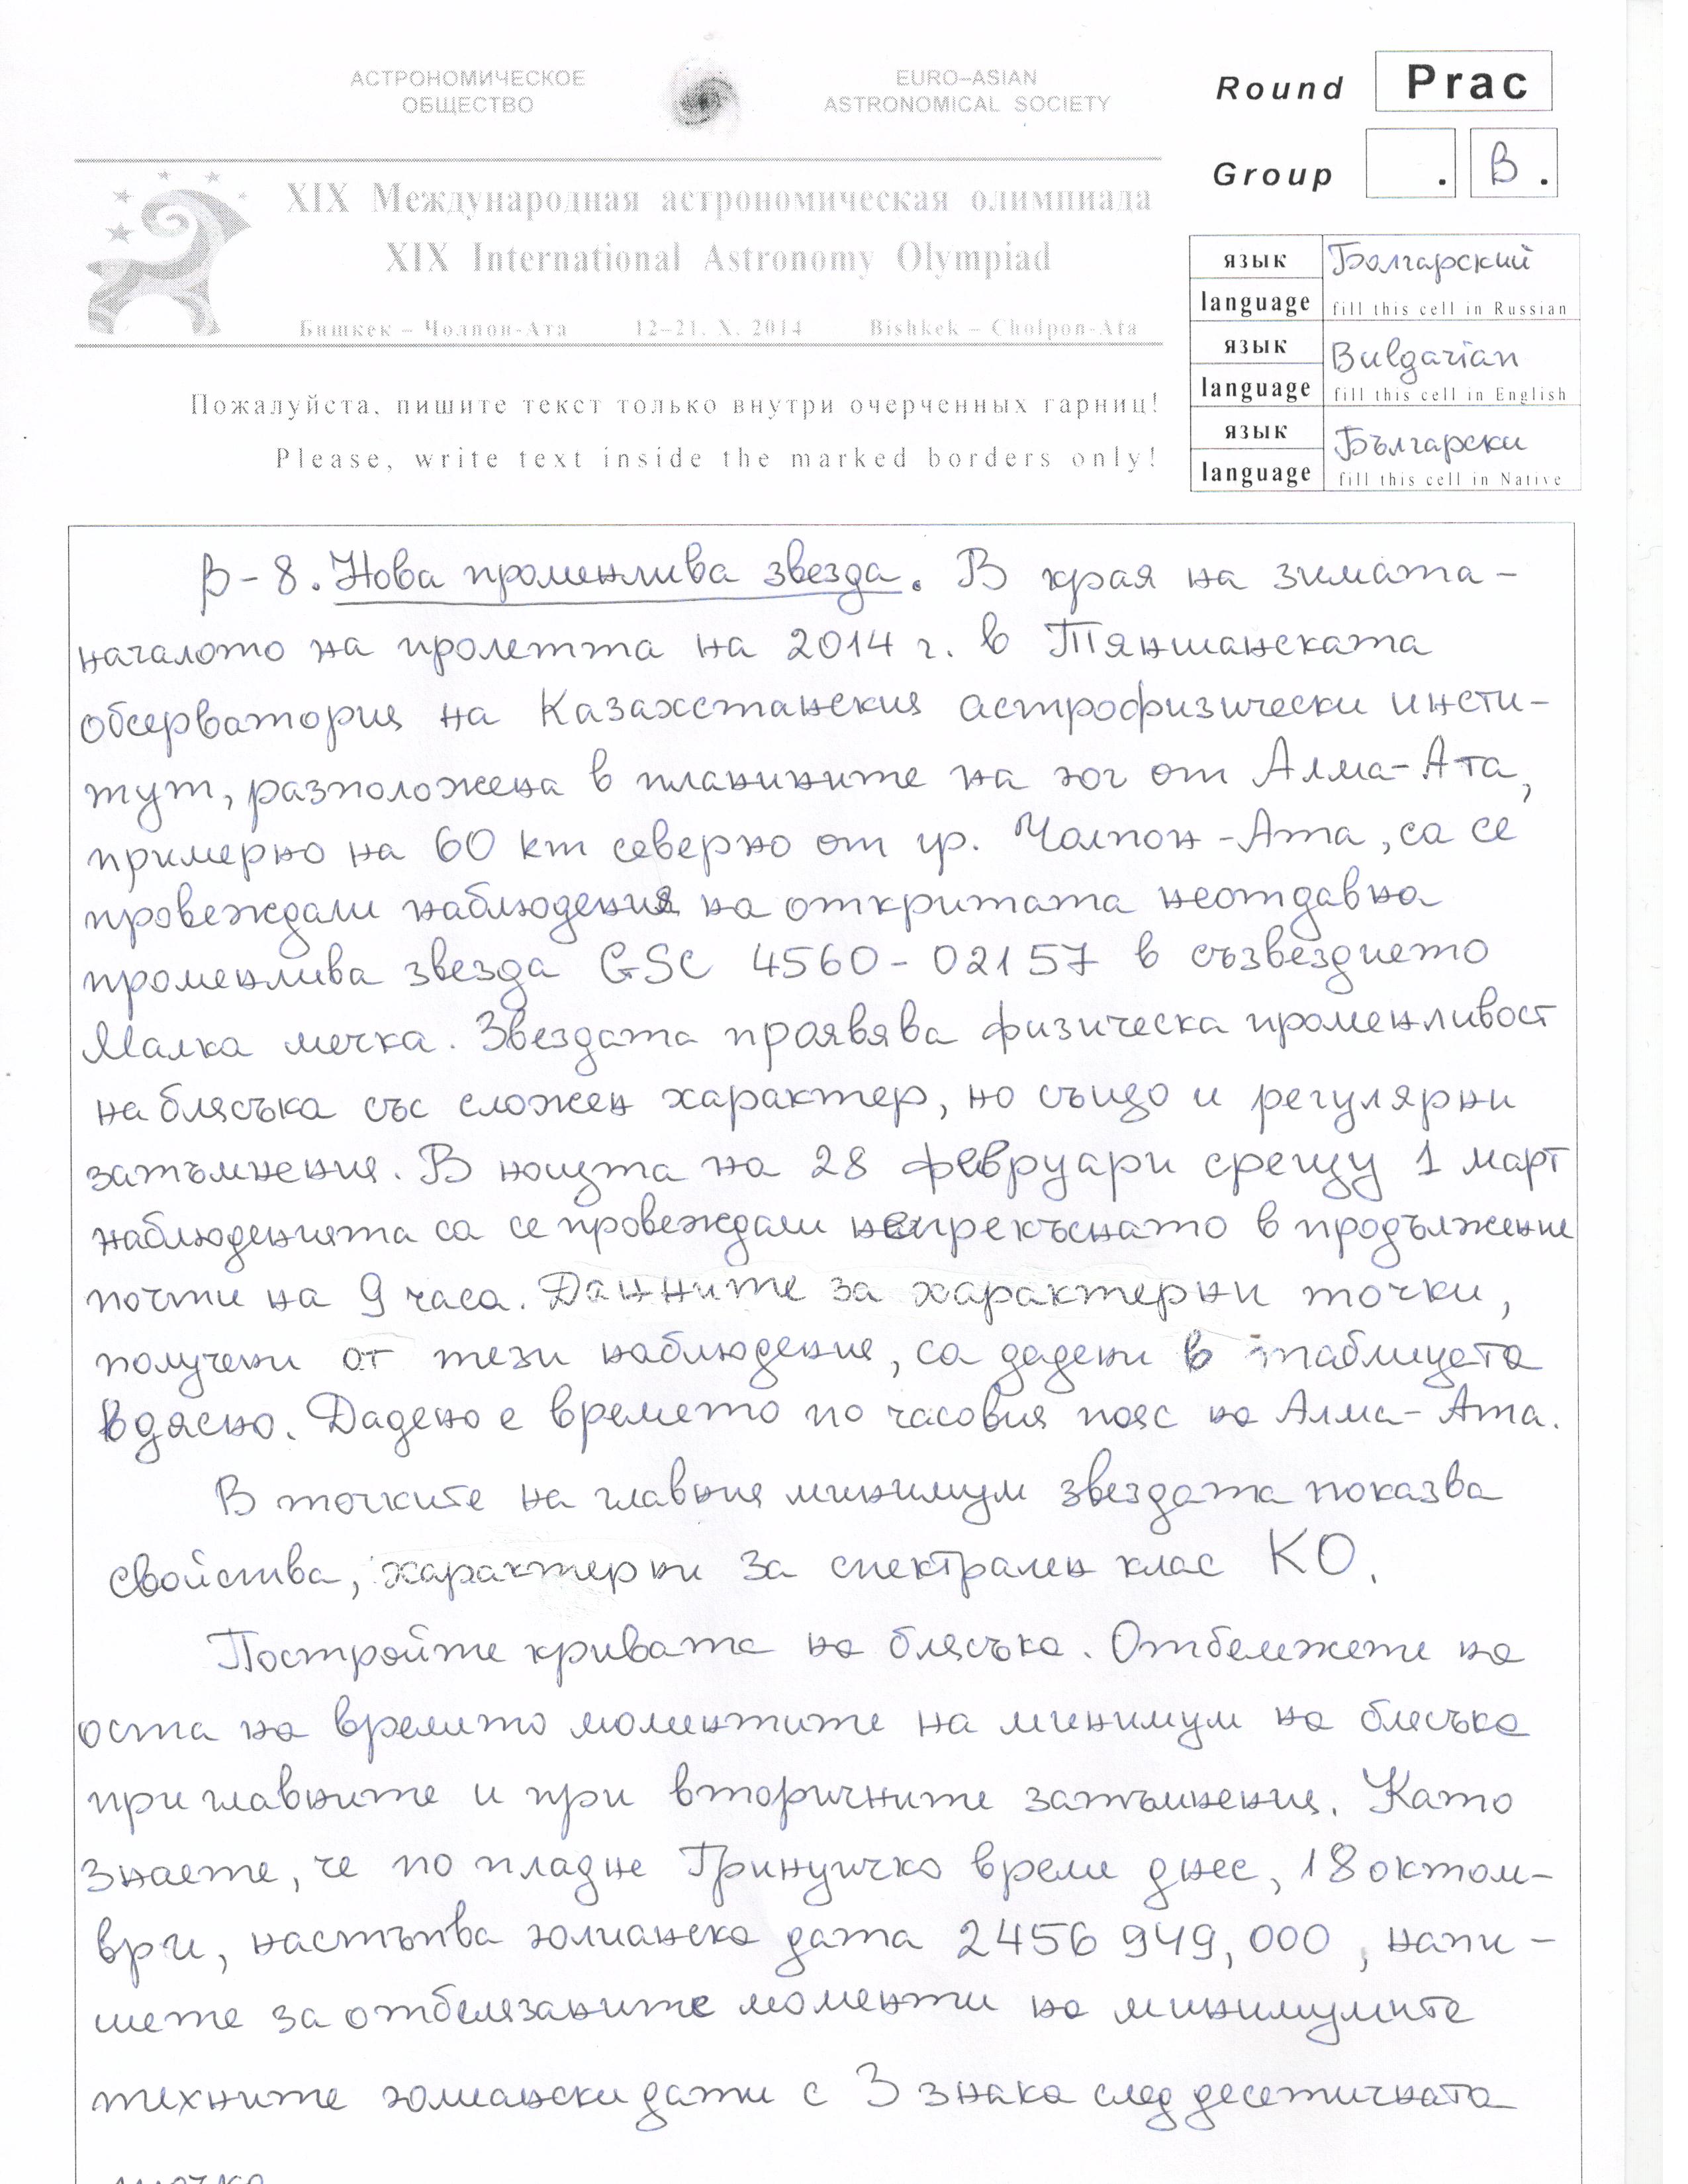 АСТРОНОМИЧЕСКОЕ
ОБЩЕСТВО
EURO–ASIAN
ASTRONOMICAL SOCIETY
Round Prac
Group . В.
XIX Международная астрономическая олимпиада
XIX International Astronomy Olympiad
Бишкек – Чолпон-Ата 12–21. X. 2014 Bishkek – Cholpon-Ata
язык Болгарский
language fill this cell in Russian
язык Bulgarian
language fill this cell in English
язык Български
language fill this cell in Native
Пожалуйста, пишите текст только внутри очерченных гарниц!
Please, write text inside the marked borders only!
β-8. Нова променлива звезда. В края на зимата-
началото на пролетта на 2014 г. в Тяншанската
обсерватория на Казахстанския астрофизически инсти-
тут, разположена в планините на юг от Алма-Ата,
примерно на 60 km северно от гр. Чолпон-Ата, са се
провеждали наблюдения на откритата неотдавна
променлива звезда GSC 4560-02157 в съзвездието
Малка мечка. Звездата проявява физическа променливост
на блясъка със сложен характер, но също и регулярни
затъмнения. В нощта на 28 февруари срещу 1 март
наблюденията са се провеждали непрекъснато в продължение
почти на 9 часа. Данните за характерни точки,
получени от тези наблюдения, са дадени в таблицата
вдясно. Дадено е времето по часовия пояс на Алма-Ата.
В точките на главния минимум звездата показва
свойства, характерни за спектрален клас K0.
Постройте кривата на блясъка. Отбележете на
оста на времето моментите на минимум на блясъка
при главните и при вторичните затъмнения. Като
знаете, че по пладне Гринуичко време днес, 18 октом-
ври, настъпва юлианска дата 2456 949,000, напи-
шете за отбелязаните моменти на минимумите
техните юлиански дати с 3 знака след десетичната